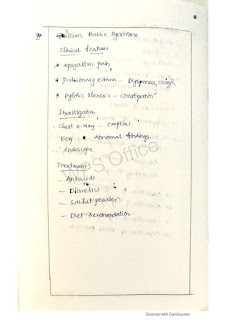 Guillian Barre Syndrome
Clinical features
* epigastric pain
* pulmonary edema - Dyspnoea, cough
* Pylotic stenosis - constipation
Investigation
- Chest x-ray -
Ecg - Abnormal findings
- endoscope
Treatment
- Antacids
- Diuretics
- Sachet powder
- Diet recomendation
WPS Office
Scanned with CamScanner